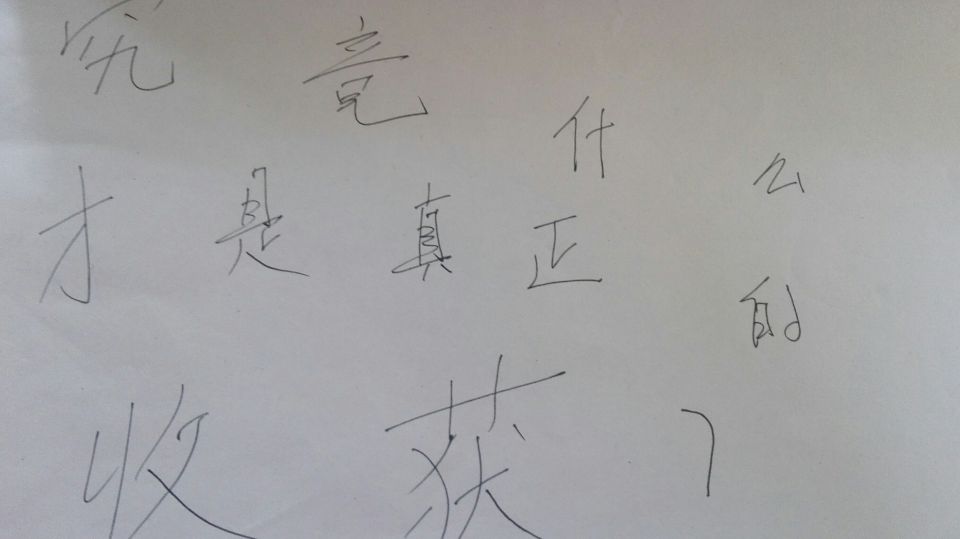 究竟什么
才是真正的
收获？